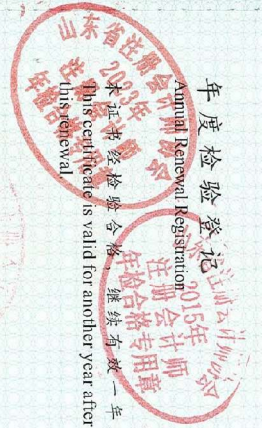 年度检验登记
Annual Renewal Registration
本证书经检验合格，继续有效一年
This certificate is valid for another year after
this renewal.
山东省注册会计师协会
2023年
年检合格专用章
2015年
注册会计师
年检合格专用章